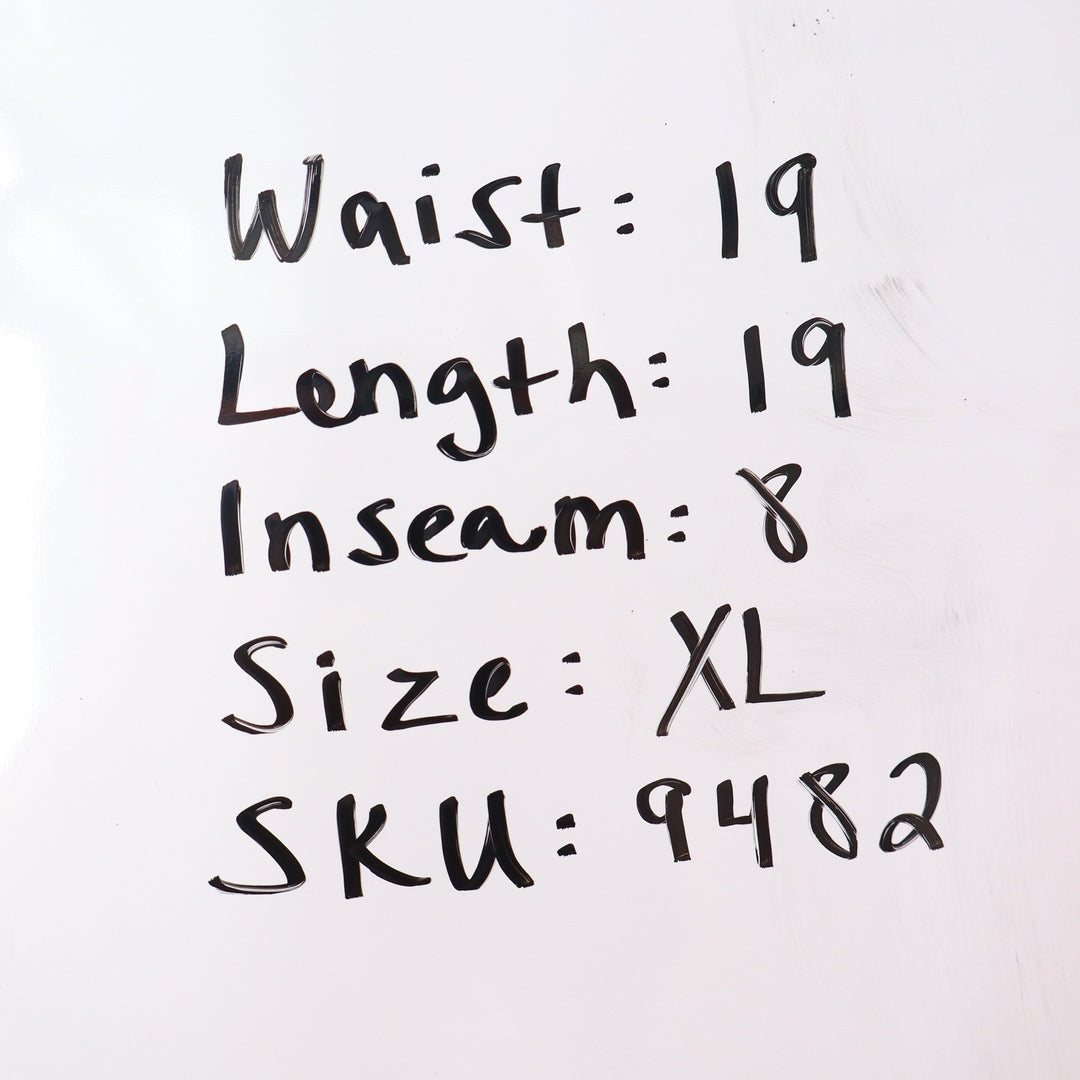 Waist: 19
Length: 19
Inseam: 8
Size: XL
SKU: 9482